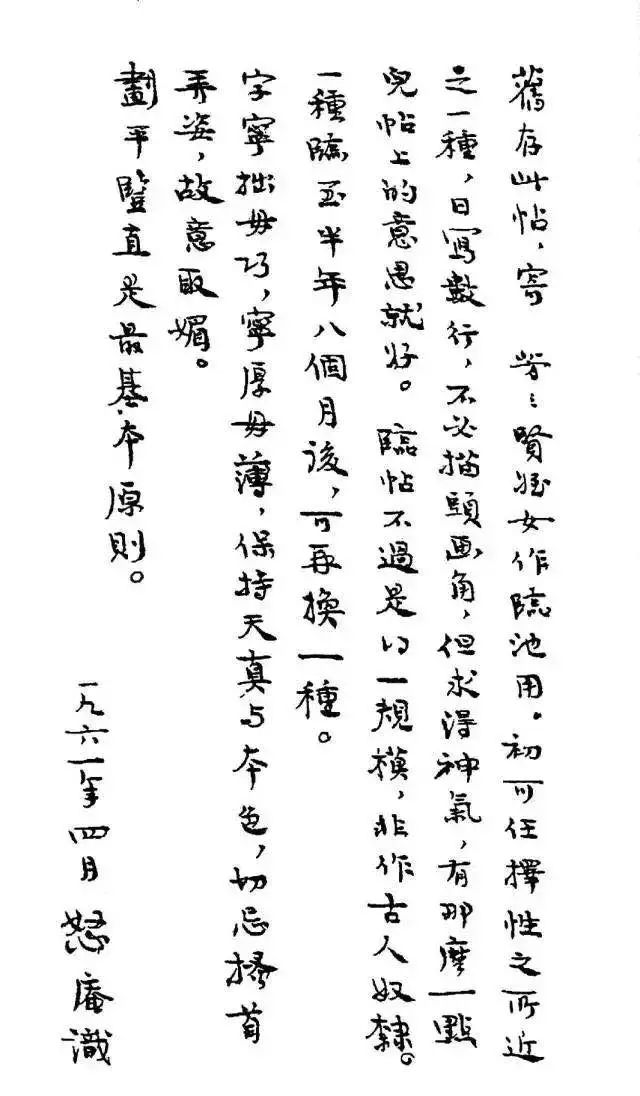 舊存此帖，寄 芳〻賢姪女作臨池用。初可任擇性之所近
之一種，日寫數行，不必描頭画角，但求得神氣，有那麼一點
兒帖上的意思就好。臨帖不過是得一規模，非作古人奴隸。
一種臨至半年八個月後，可再換一種。
字寧拙毋巧，寧厚毋薄，保持天真与本色，切忌搔首
弄姿，故意取媚。
劃平豎直是最基本原則。
一九六一年四月 怒庵識